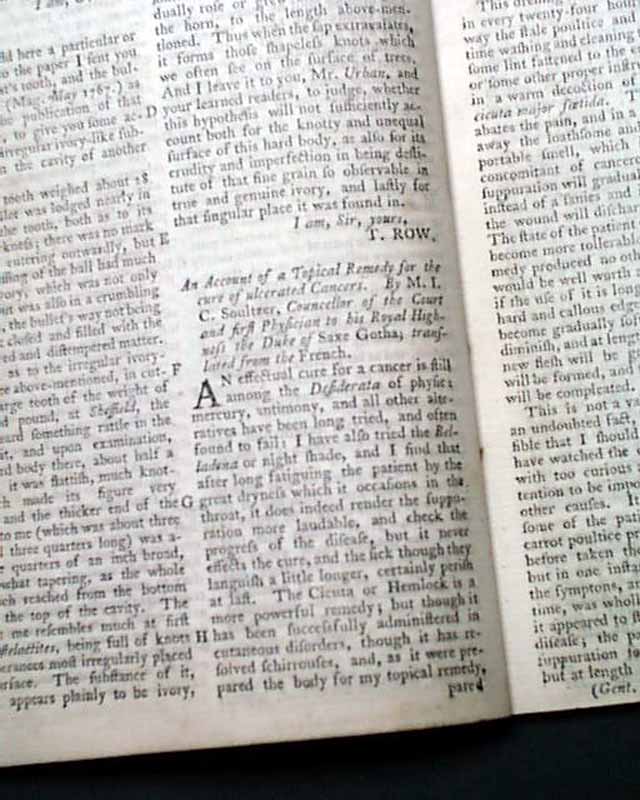 I am, G
ld here a particular or
o the paper I sent you
t's tooth, and the bul-
(Mag. May 1767.) as
he publication of that
, to give you some ac-
irregular ivory-like sub-
n the cavity of another
tooth weighed about 18
ller was lodged nearly in
the tooth, both as to its
knefs; there was no mark
entering outwardly, but E
ffing of the ball had much
vory, which was not only
ut was alfo in a crumbling
, the bullet's way not being
e clofed and filled with the
ed and diftempered matter.
as to the irregular ivory-
e above-mentioned, in cut- F
arge tooth of the weight of
d pound, at Sheffield, the
eard fomething rattle in the
it, and upon examination,
rd body there, about half a
it was flattifh, much knot-
h made its figure very
and the thicker end of the G
to me (which was about three
d three quarters long) was a-
e quarters of an inch broad,
ewhat tapering, as the whole
ch reached from the bottom
the top of the cavity. The
me refembles much at firft
ftelactites, being full of knots H
erances moft irregularly placed
urface. The fubftance of it,
appears plainly to be ivory,
dually rofe or
the horn, to the length above-men-
tioned. Thus when the fap extravafates,
it forms thofe fhapelefs knots which
we often fee on the furface of trees.
And I leave it to you, Mr. Urban, and
D your learned readers, to judge, whether
this hypothefis will not fufficiently ac-
count both for the knotty and unequal
furface of this hard body, as alfo for its
crudity and imperfection in being defti-
tute of that fine grain fo obfervable in
true and genuine ivory, and laftly for
that fingular place it was found in.
I am, Sir, yours,
T. ROW.
An Account of a Topical Remedy for the
cure of ulcerated Cancers. By M. I.
C. Soultzer, Councellor of the Court
and firft Phyfician to his Royal High-
nefs the Duke of Saxe Gotha; tranf-
lated from the French.
AN effectual cure for a cancer is ftill
among the Defiderata of phyfic;
mercury, antimony, and all other alte-
ratives have been long tried, and often
found to fail: I have alfo tried the Bel-
ladona or night fhade, and I find that
after long fatiguing the patient by the
great drynefs which it occafions in the
throat, it does indeed render the fuppu-
ration more laudable, and check the
progrefs of the difeafe, but it never
effects the cure, and the fick though they
languifh a little longer, certainly perifh
at laft. The Cicuta or Hemlock is a
more powerful remedy; but though it
has been fuccefsfully adminiftered in
cutaneous diforders, though it has re-
folved fchirroufes, and, as it were pre-
pared the body for my topical remedy,
pared
This dreffing
in every twenty-four hou
way the ftale poultice and
time wafhing and cleaning
fome lint faftened to the
or fome other proper inftru
in a warm decoction of
cicuta major fœtida. T
abates the pain, and in a
away the loathfome and
portable fmell, which
concomitant of cancer
fuppuration will gradual
inftead of a fanies and
the wound will difchar
The ftate of the patient
become more tolerable
medy produced no oth
would be well worth
if the ufe of it is long
hard and callous edge
become gradually fof
diminifh, and at length
new flefh will be g
will be formed, and
will be compleated.
This is not a va
an undoubted fact,
fible that I fhould
have watched the
with too curious
tention to be impof
other caufes. I
fome of the par
carrot poultice pr
before taken th
but in one inftan
the fymptoms, a
time, was wholl
it appeared to
difeafe; the po
fuppuration fo
but at length
(Gent.